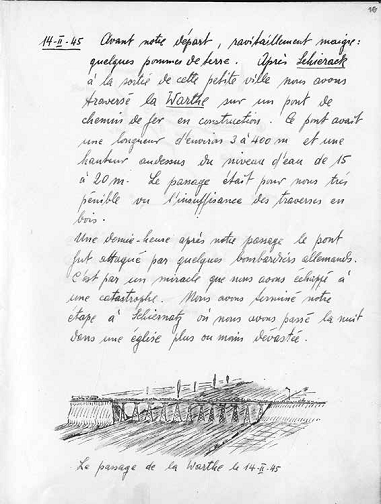 14-II-45 Avant notre départ, ravitaillement maigre:
quelques pommes de terre. Après Schierack
à la sortie de cette petite ville nous avons
traversé la Warthe sur un pont de
chemin de fer en construction. Ce pont avait
une longueur d'environ 3 à 400 m et une
hauteur audessus du niveau d'eau de 15
à 20 m. Le passage était pour nous très
pénible vu l'insuffisance des traverses en
bois.
Une demie-heure après notre passage le pont
fut attaqué par quelques bombardiers allemands.
C'est par un miracle que nous avons échappé à
une catastrophe. Nous avons terminé notre
étape à où nous avons passé la nuit
dans une église plus ou moins dévastée.
Le passage de la Warthe le 14-II-45